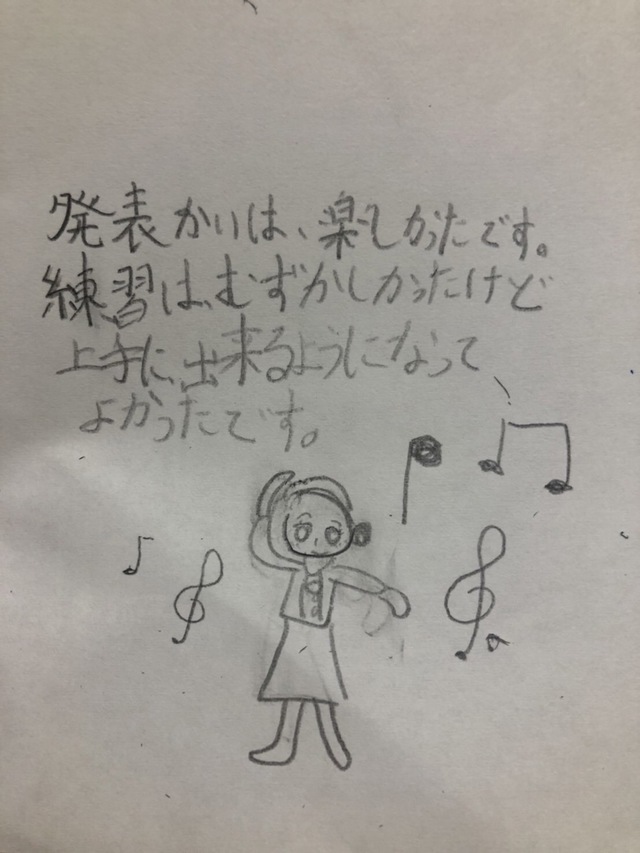 発表かいは、楽しかったです。
練習は、むずかしかったけど
上手に、出来るようになって
よかったです。